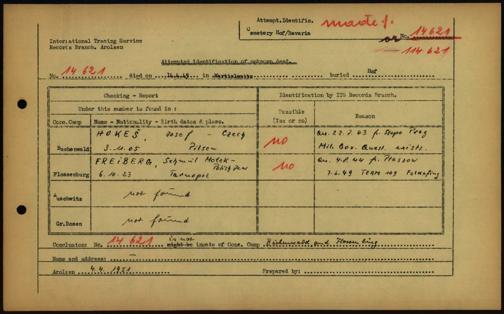 Attempt.Identific.
Cemetery Hof/Bavaria
made f.
International Tracing Service
Records Branch, Arolsen
or No. 14621
114621
Attempted identification of unknown dead.
No. 14 621 died on 16.4.45 in buried Hof
Checking - Report
Identification by ITS Records Branch.
Under this number is found in:
Possible
(Yes or no)
Reason
Conc.Camp
Name - Nationality - Birth dates & place.
Buchenwald
HOKEŠ, Josef - Czech
3.11.05 Pilsen
no
Arr. 23.7.43 f. Prag
Mil. Gov. Quest. exists.
Flossenburg
FREIBERG, Schmul Molek-
6.10.23 Tarnopol
no
Arr. 4.8.44 f. Plaszow
7.6.49 Team 109
Auschwitz
not found
Gr.Rosen
not found
Conclusion: No. 14 621 is not inmate of Conc. Camp Buchenwald and Flossenburg
Name and address: —
Arolsen 4.4.1951
Prepared by: